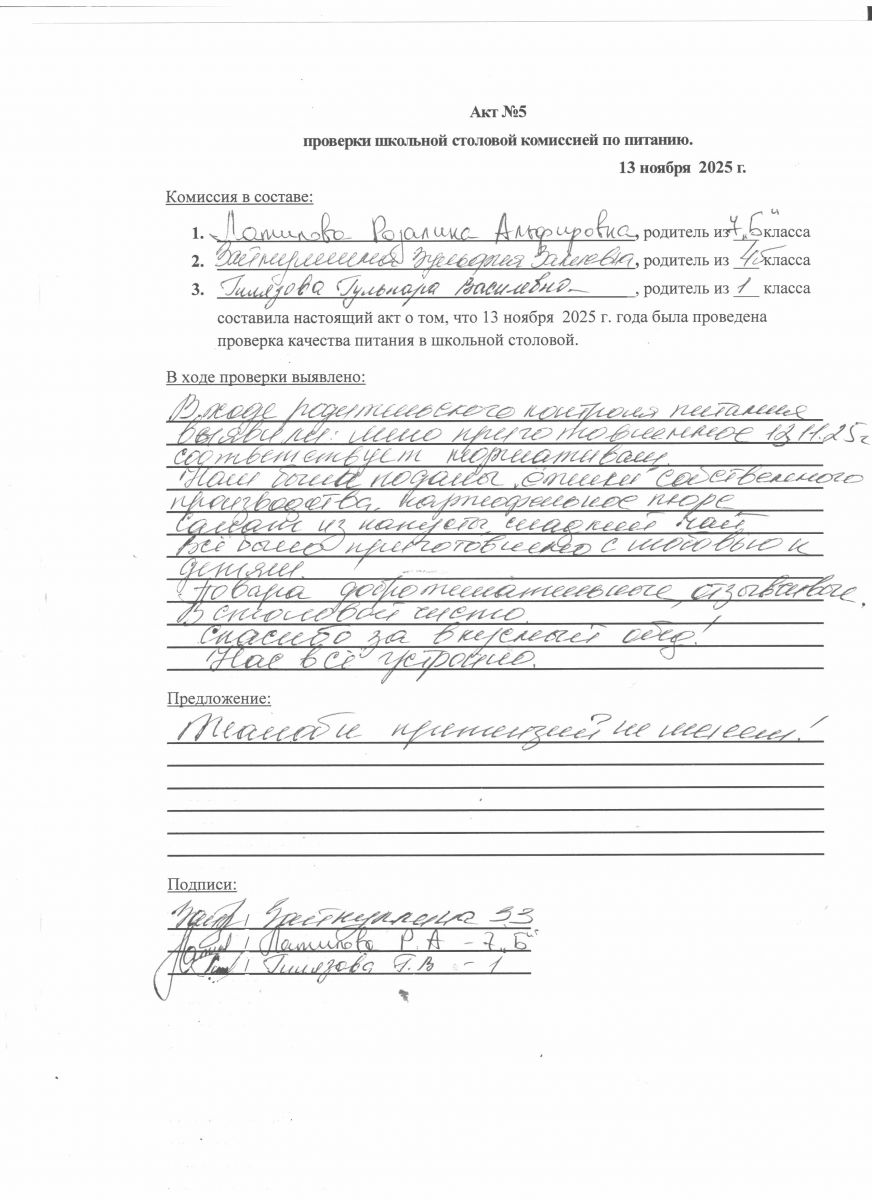 Акт №5
проверки школьной столовой комиссией по питанию.
13 ноября 2025 г.
Комиссия в составе:
1. Латипова Розалина Альфировна, родитель из 7 „Б“ класса
2. Зайнуллина Зульфия, родитель из 4 класса
3. Гилязова Гульнара Василевна, родитель из 1 класса
составила настоящий акт о том, что 13 ноября 2025 г. года была проведена
проверка качества питания в школьной столовой.
В ходе проверки выявлено:
В ходе родительского контроля питания
выявили: приготовленное 13.11.25г
соответствует нормативам.
Нам были поданы собственного
производства, картофельное пюре
Салат из капусты, сладкий чай
Всё было приготовлено с любовью к
детям.
Повара доброжелательные, отзывчивые.
В столовой чисто.
Спасибо за вкусный обед!
Нас всё устроило.
Предложение:
Жалоб и претензий не имеем!
Подписи:
Зайнуллина З.З
Латипова Р.А - 7 „Б“
Гилязова Г.В - 1